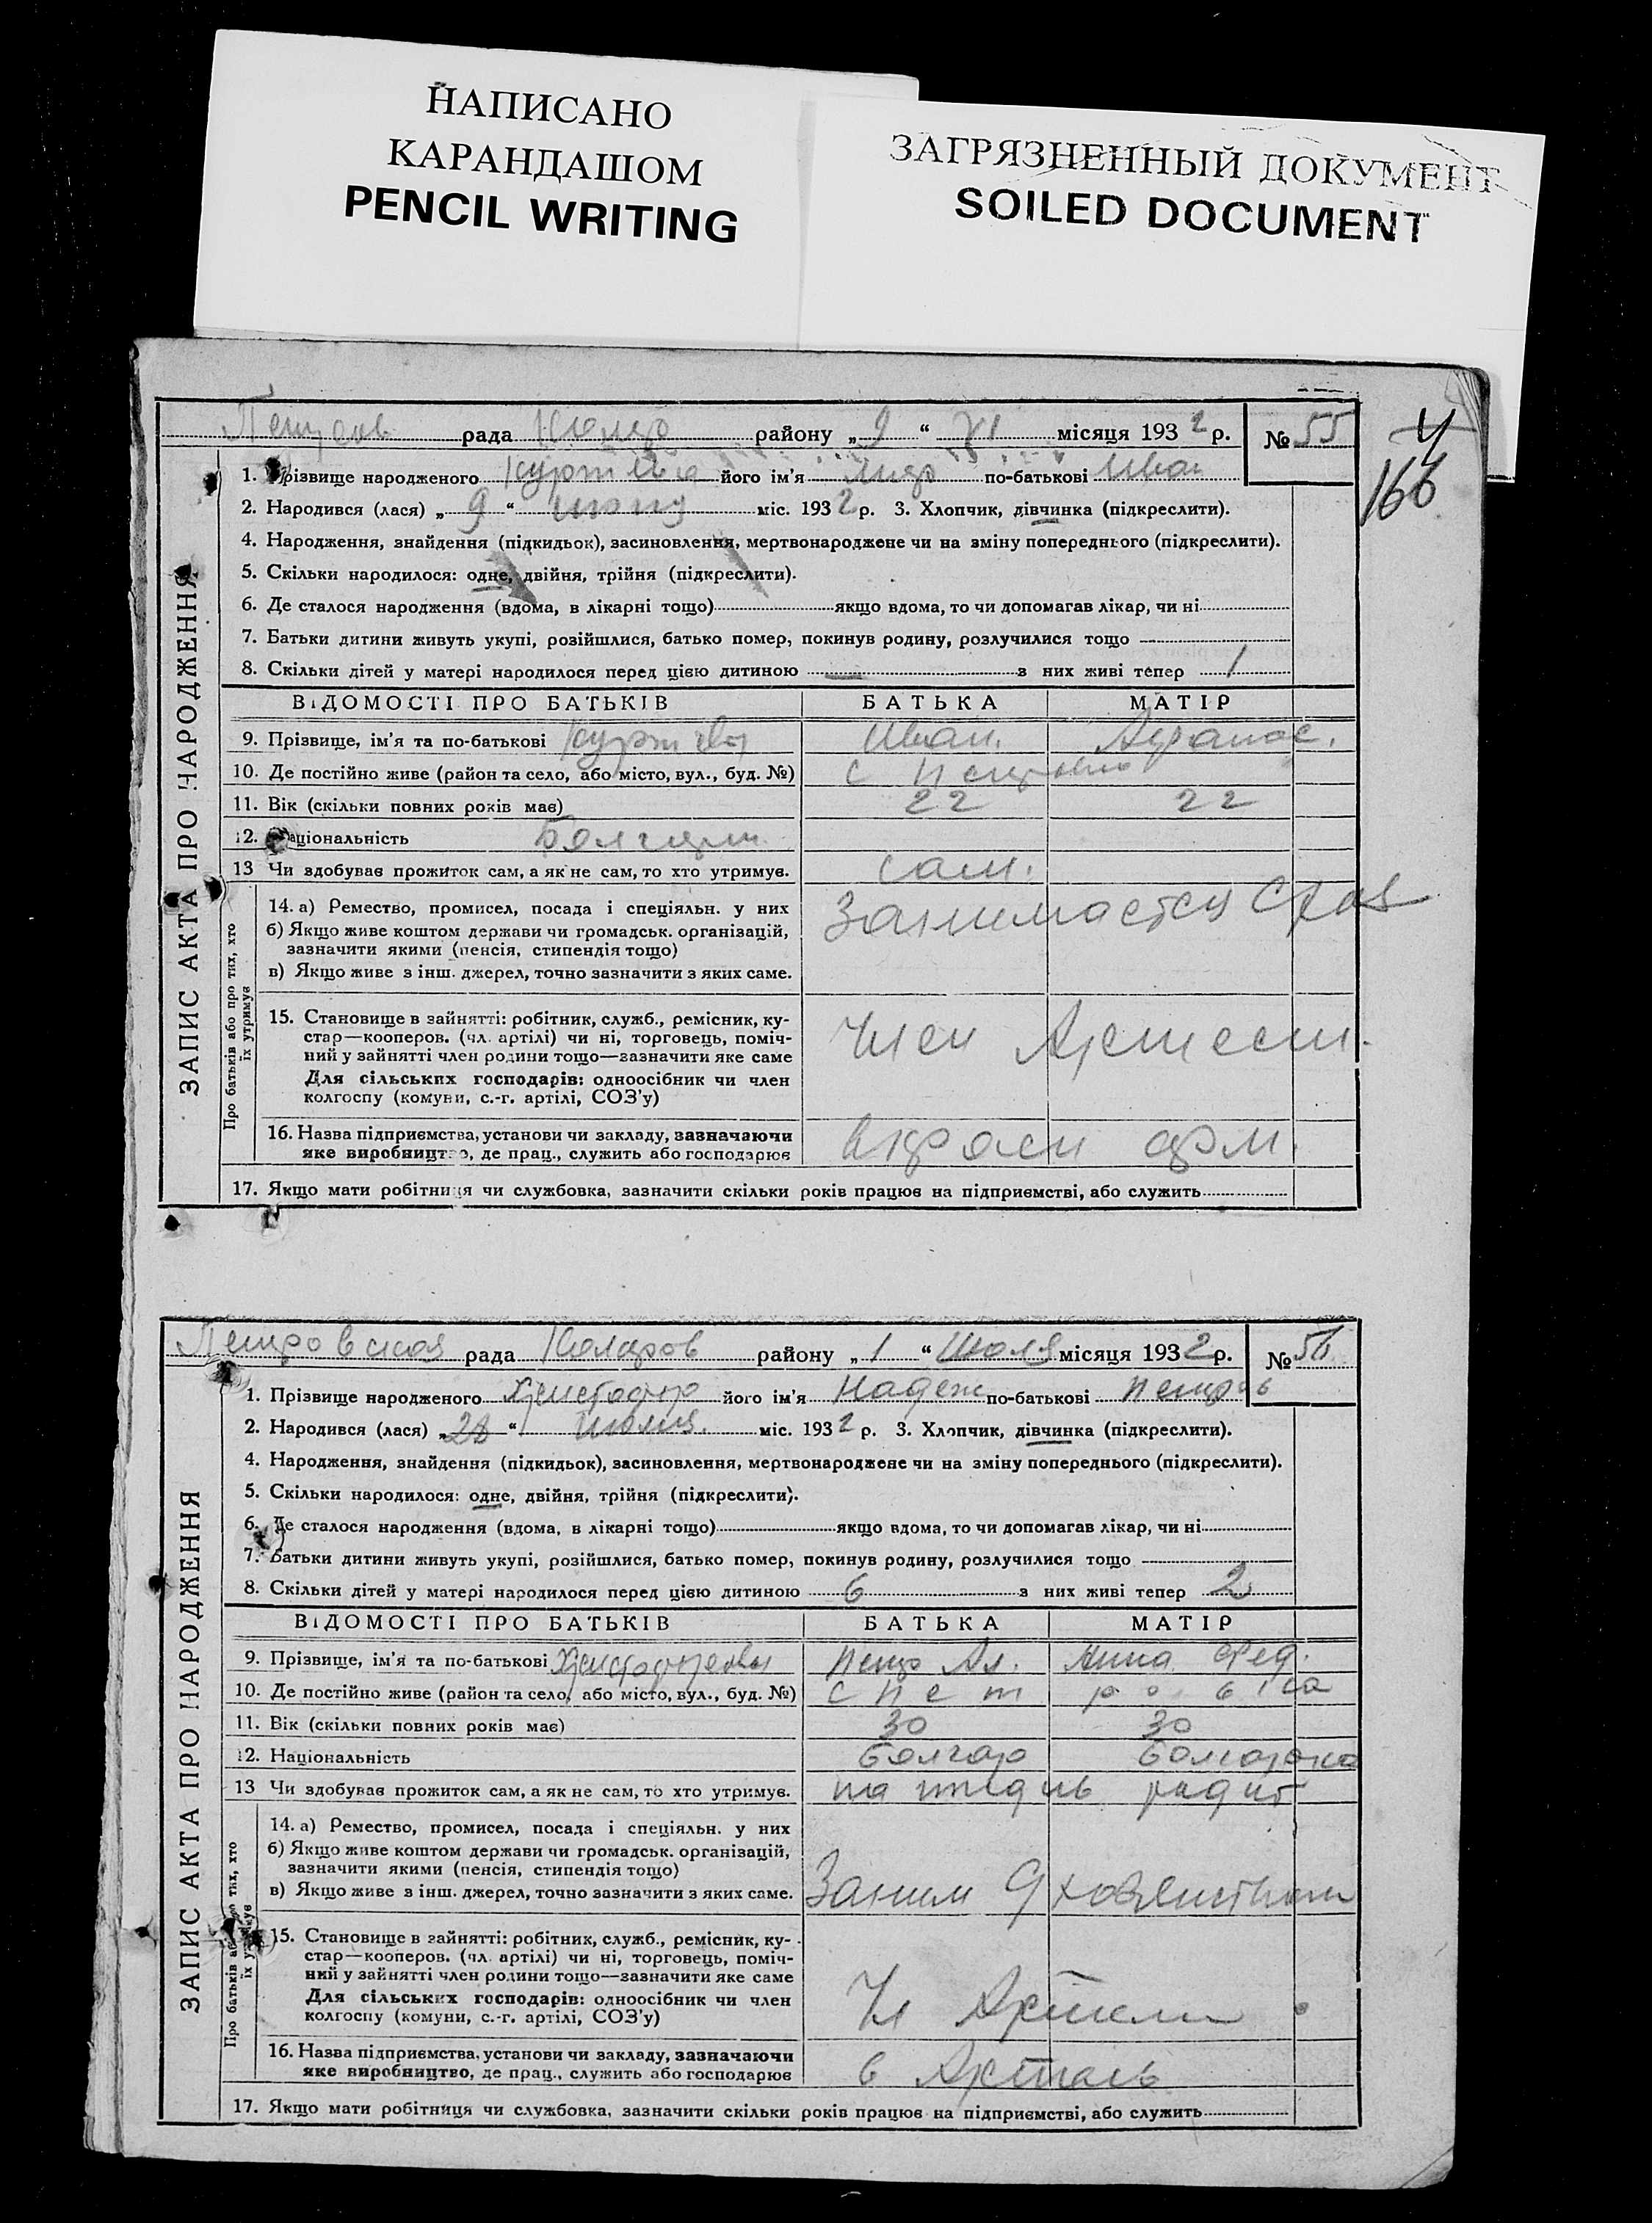 НАПИСАНО
КАРАНДАШОМ
PENCIL WRITING
ЗАГРЯЗНЕННЫЙ ДОКУМЕНТ
SOILED DOCUMENT
4
166
рада району „9“ місяця 1932 р. № 55
1. Прізвище народженого його ім'я по-батькові Иван
2. Народився (лася) „9“ міс. 1932 р. 3. Хлопчик, дівчинка (підкреслити).
4. Народження, знайдення (підкидьок), засиновлення, мертвонароджене чи на зміну попереднього (підкреслити).
5. Скільки народилося: одне, двійня, трійня (підкреслити).
6. Де сталося народження (вдома, в лікарні тощо) якщо вдома, то чи допомагав лікар, чи ні
7. Батьки дитини живуть укупі, розійшлися, батько помер, покинув родину, розлучилися тощо
8. Скільки дітей у матері народилося перед цією дитиною — з них живі тепер 1
ВІДОМОСТІ ПРО БАТЬКІВ БАТЬКА МАТІР
9. Прізвище, ім'я та по-батькові Иван.
10. Де постійно живе (район та село, або місто, вул., буд. №) с
11. Вік (скільки повних років має) 22 22
12. Національність
13 Чи здобуває прожиток сам, а як не сам, то хто утримує. сам.
14. а) Ремество, промисел, посада і спеціяльн. у них Занимается
б) Якщо живе коштом держави чи громадськ. організацій,
зазначити якими (пенсія, стипендія тощо)
в) Якщо живе з інш. джерел, точно зазначити з яких саме.
15. Становище в зайнятті: робітник, служб., ремісник, ку-
стар—кооперов. (чл. артілі) чи ні, торговець, поміч-
ний у зайнятті член родини тощо—зазначити яке саме
Член
Для сільських господарів: одноосібник чи член
колгоспу (комуни, с.-г. артілі, СОЗ'у)
16. Назва підприємства, установи чи закладу, зазначаючи
яке виробництво, де прац., служить або господарює
17. Якщо мати робітниця чи службовка, зазначити скільки років працює на підприємстві, або служить
ЗАПИС АКТА ПРО НАРОДЖЕННЯ
Про батьків або про тих, хто
їх утримує
Петровская рада Коларов району „1“ Июля місяця 1932 р. № 56
1. Прізвище народженого його ім'я Надеж по-батькові Петров
2. Народився (лася) „28“ июля. міс. 1932 р. 3. Хлопчик, дівчинка (підкреслити).
4. Народження, знайдення (підкидьок), засиновлення, мертвонароджене чи на зміну попереднього (підкреслити).
5. Скільки народилося: одне, двійня, трійня (підкреслити).
6. Де сталося народження (вдома, в лікарні тощо) якщо вдома, то чи допомагав лікар, чи ні
7. Батьки дитини живуть укупі, розійшлися, батько помер, покинув родину, розлучилися тощо
8. Скільки дітей у матері народилося перед цією дитиною 6 з них живі тепер 2
ВІДОМОСТІ ПРО БАТЬКІВ БАТЬКА МАТІР
9. Прізвище, ім'я та по-батькові Петр Ал. Анна Фед.
10. Де постійно живе (район та село, або місто, вул., буд. №) с Петровка
11. Вік (скільки повних років має) 30 30
12. Національність болгар болгарка
13 Чи здобуває прожиток сам, а як не сам, то хто утримує.
14. а) Ремество, промисел, посада і спеціяльн. у них
б) Якщо живе коштом держави чи громадськ. організацій,
зазначити якими (пенсія, стипендія тощо)
в) Якщо живе з інш. джерел, точно зазначити з яких саме. Заним
15. Становище в зайнятті: робітник, служб., ремісник, ку-
стар—кооперов. (чл. артілі) чи ні, торговець, поміч-
ний у зайнятті член родини тощо—зазначити яке саме
Для сільських господарів: одноосібник чи член
колгоспу (комуни, с.-г. артілі, СОЗ'у) Чл Артели
16. Назва підприємства, установи чи закладу, зазначаючи
яке виробництво, де прац., служить або господарює в Артель
17. Якщо мати робітниця чи службовка, зазначити скільки років працює на підприємстві, або служить
ЗАПИС АКТА ПРО НАРОДЖЕННЯ